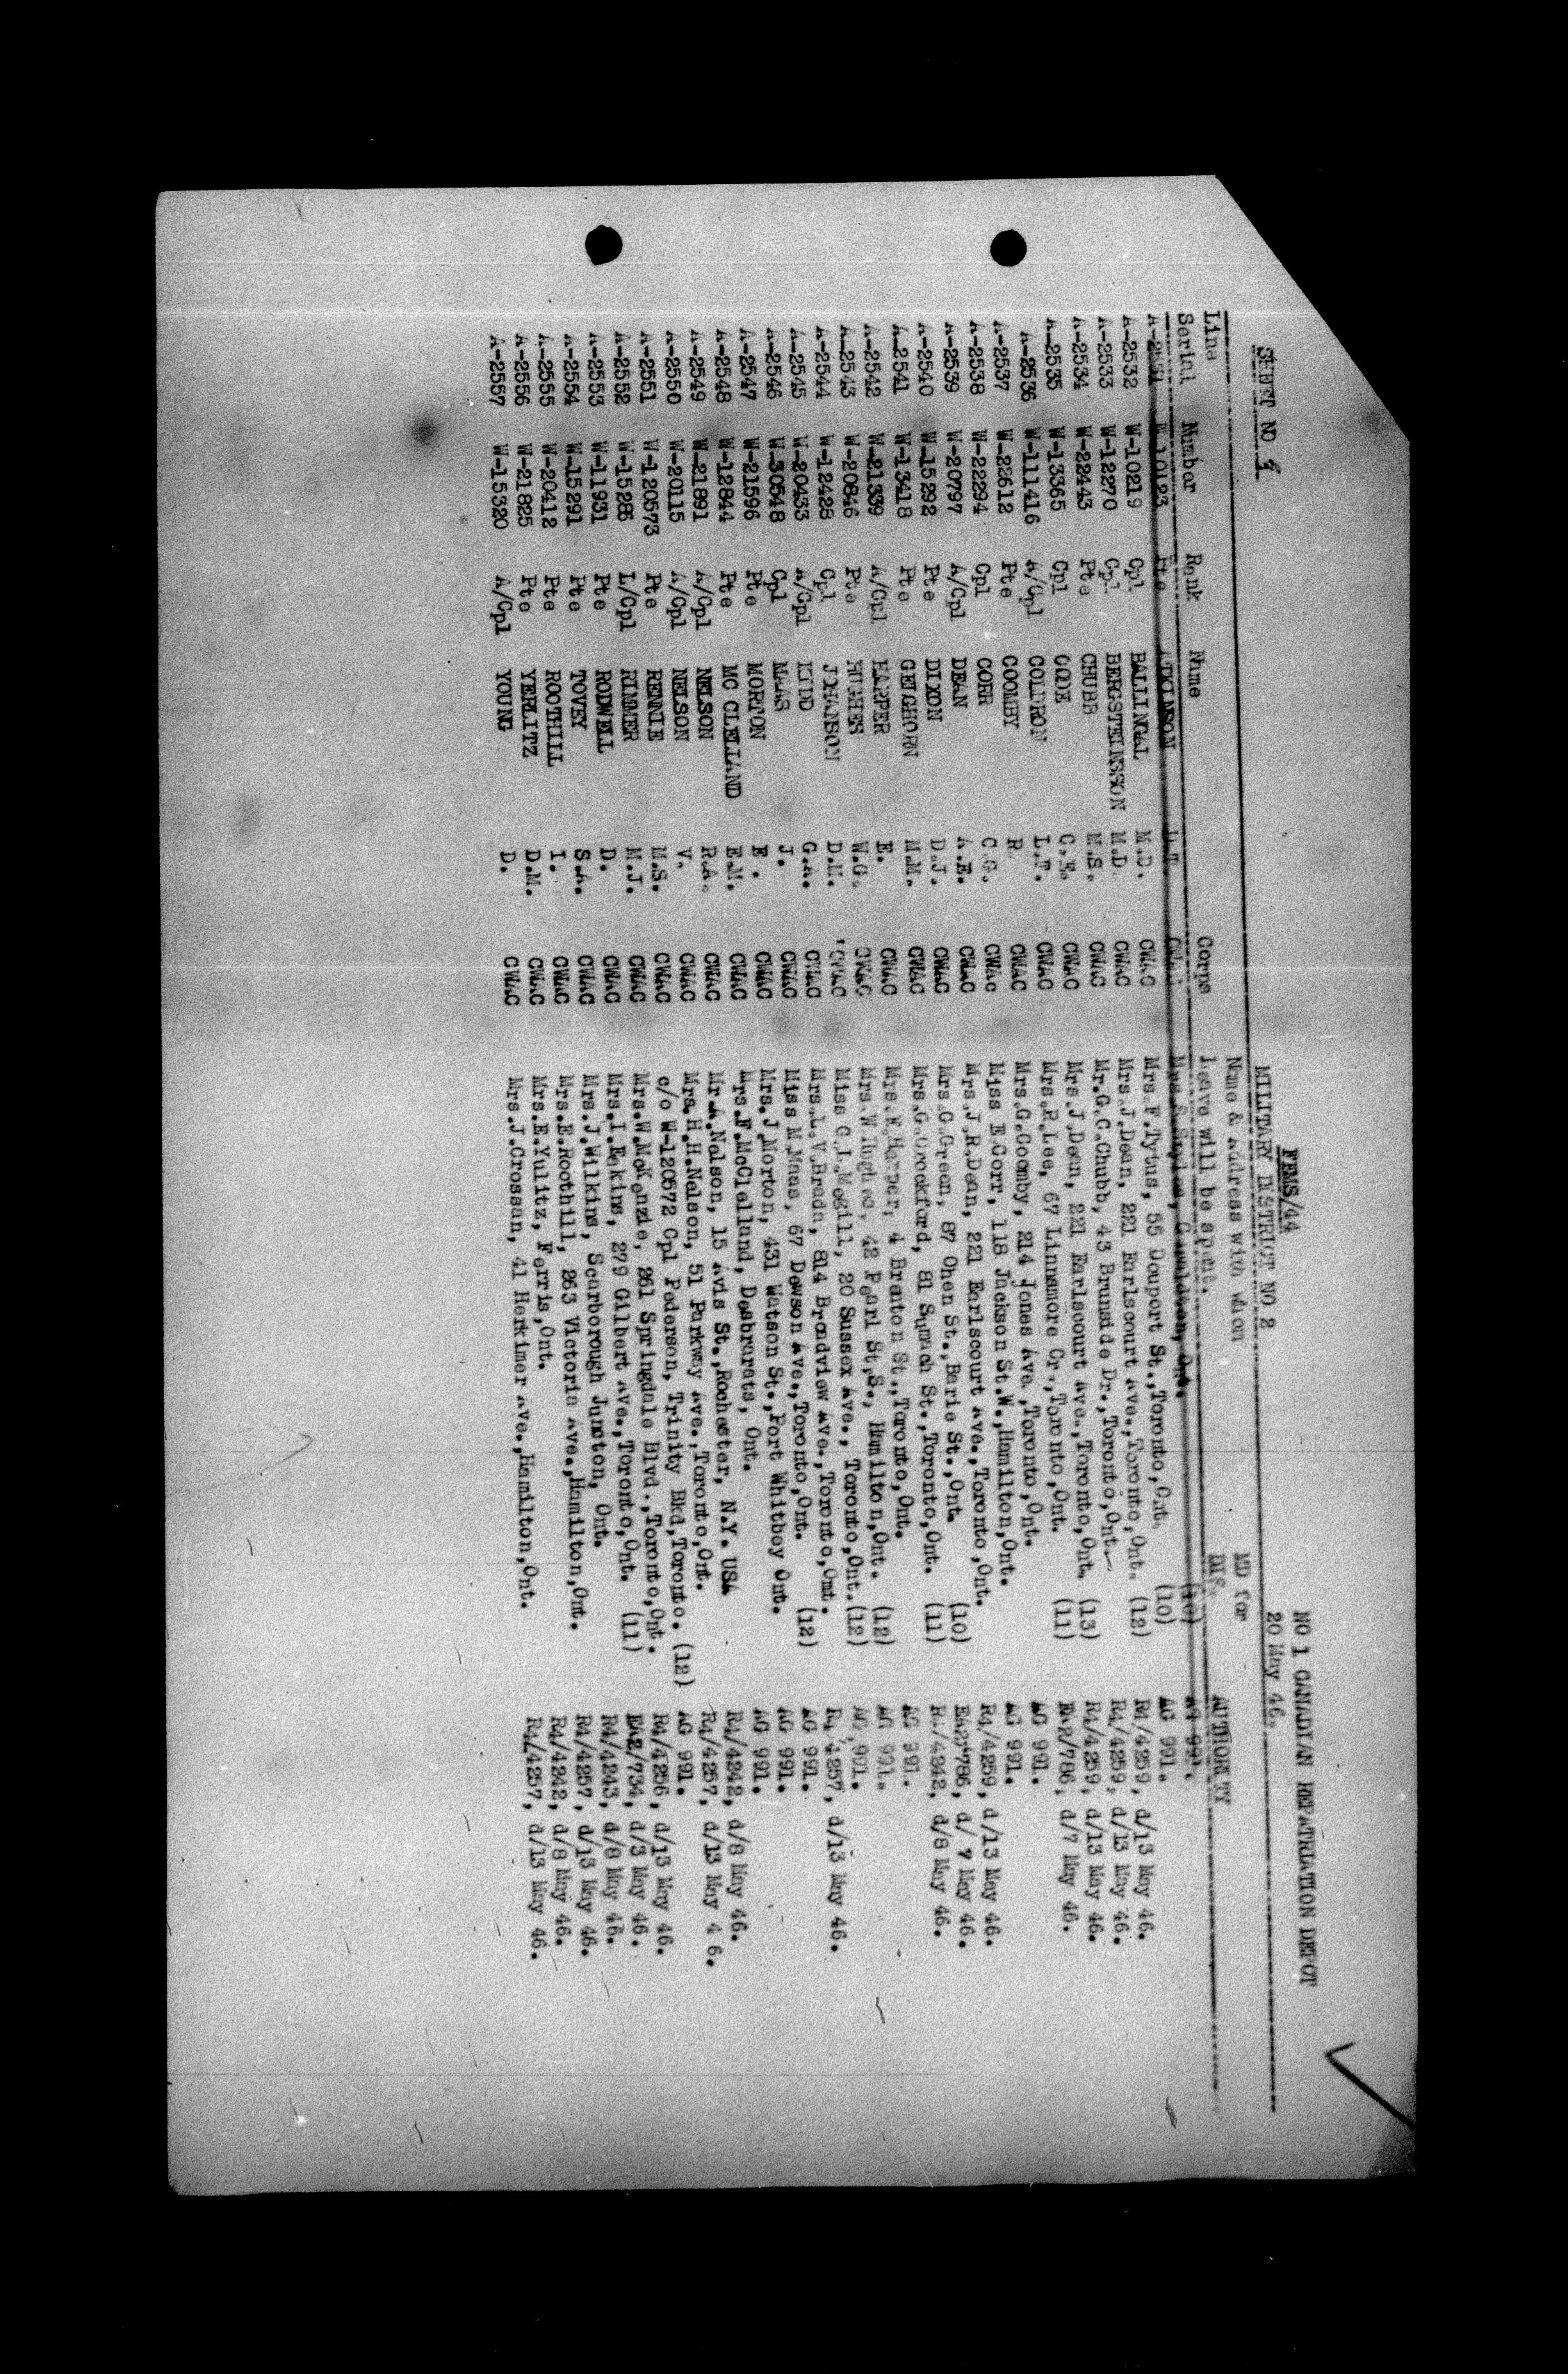 NO 1 CANADIAN REPATRIATION DEPOT
FEMS/44
20 May 46.
SHEET NO 4 MILITARY DISTRICT NO 2
Name & Address with whom MD for
Line Leave will be spent. DIS. AUTHORITY
Serial Number Rank Name Corps
A-2531 W-10123 Pte ATKINSON CWAC Ont. (10) AG 991.
A-2532 W-10219 Cpl BALLINGAL M.D. CWAC Mrs.F.Tytus, 55 Douport St.,Toronto,Ont. (10) AG 991.
A-2533 W-12270 Cpl BERGSTEINSSON M.D. CWAC Mrs.J.Dean, 221 Earlscourt Ave.,Toronto,Ont. (12) RA/4259, d/13 May 46.
A-2534 W-22443 Pte CHUBB M.S. CWAC Mr.G.C.Chubb, 43 Brunside Dr.,Toronto,Ont. RA/4259, d/13 May 46.
A-2535 W-13365 Cpl CODE C.E. CWAC Mrs.J.Dean, 221 Earlscourt Ave.,Toronto,Ont. (13) RA/4259, d/13 May 46.
A-2536 W-111416 A/Cpl COLDRON L.F. CWAC Mrs.P.Lee, 67 Linnsmore Cr.,Toronto,Ont. (11) EA2/786, d/7 May 46.
A-2537 W-22612 Pte COOMBY R. CWAC Mrs.G.Coomby, 214 Jones Ave.,Toronto,Ont. AG 991.
A-2538 W-22294 Cpl CORR C.G. CWAC Miss E.Corr, 118 Jackson St.W.,Hamilton,Ont. AG 991.
A-2539 W-20797 A/Cpl DEAN A.E. CWAC Mrs.J.R.Dean, 221 Earlscourt Ave.,Toronto,Ont. RA/4259, d/13 May 46.
A-2540 W-15292 Pte DIXON D.J. CWAC Mrs.C.Green, 87 Ohen St.,Barie St.,Ont. (10) EA2/786, d/ 7 May 46.
A-2541 W-13418 Pte GEIGHORN M.M. CWAC Mrs.G.Crockford, 81 Sumach St.,Toronto,Ont. (11) RA/4242, d/8 May 46.
A-2542 W-21339 A/Cpl HARPER E. CWAC Mrs.W.Harper, 4 Brenton St.,Toronto,Ont. AG 991.
A-2543 W-20846 Pte HUGHES W.G. CWAC Mrs.W.Hughes, 42 Pearl St,S., Hamilton,Ont. (12) AG 991.
A-2544 W-12428 Cpl JOHANSON D.M. CWAC Miss G.I.Megill, 20 Sussex Ave., Toronto,Ont.(12) AG 991.
A-2545 W-20433 A/Cpl KIDD G.A. CWAC Mrs.L.V.Brada, 814 Broadview Ave.,Toronto,Ont. RA/4257, d/13 May 46.
A-2546 W-30548 Cpl MAAS J. CWAC Miss M.Maas, 67 Dewson Ave.,Toronto,Ont. (12) AG 991.
A-2547 W-21596 Pte MORTON E. CWAC Mrs.J.Morton, 431 Watson St.,Port Whitboy Ont. AG 991.
A-2548 W-12844 Pte MC CLELLAND E.M. CWAC Mrs.F.McClelland, Desbrarats, Ont. AG 991.
A-2549 W-21891 A/Cpl NELSON R.A. CWAC Mr.A.Nelson, 15 Avis St.,Rochester, N.Y. USA RA/4242, d/8 May 46.
A-2550 W-20115 A/Cpl NELSON V. CWAC Mrs.H.H.Nelson, 51 Parkway Ave.,Toronto,Ont. RA/4257, d/13 May 4 6.
A-2551 W-120573 Pte RENNIE M.S. CWAC c/o W-120572 Cpl Pederson, Trinity Bkd,Toronto. (12) AG 991.
A-2552 W-15286 L/Cpl RIMMER M.J. CWAC Mrs.W.McKenzie, 261 Springdale Blvd.,Toronto,Ont. RA/4256, d/13 May 46.
A-2553 W-11931 Pte RODWELL D. CWAC Mrs.I.Eakins, 279 Gilbert Ave.,Toronto,Ont. (11) EA2/734, d/3 May 46.
A-2554 W-15291 Pte TOVEY S.A. CWAC Mrs.J.Wilkins, Scarborough Juncton, Ont. RA/4243, d/8 May 46.
A-2555 W-20412 Pte ROOTHILL I. CWAC Mrs.E.Roothill, 263 Victoria Ave.,Hamilton,Ont. RA/4257, d/13 May 46.
A-2556 W-21825 Pte YERLITZ D.M. CWAC Mrs.E.Yulitz, Ferris,Ont. RA/4242, d/8 May 46.
A-2557 W-15320 A/Cpl YOUNG D. CWAC Mrs.J.Crossan, 41 Herkimer Ave.,Hamilton,Ont. RA/4257, d/13 May 46.